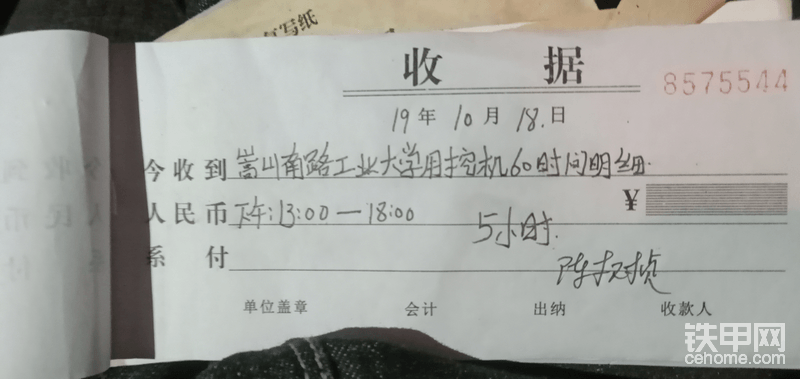 写纸
收 据
8575544
19年 10月 18.日
今收到 嵩山南路工业大学用挖机60时间明细.
¥
人民币 下午:13:00—18:00
5小时.
系 付
陈
单位盖章 会计 出纳 收款人
铁甲网
cehome.com